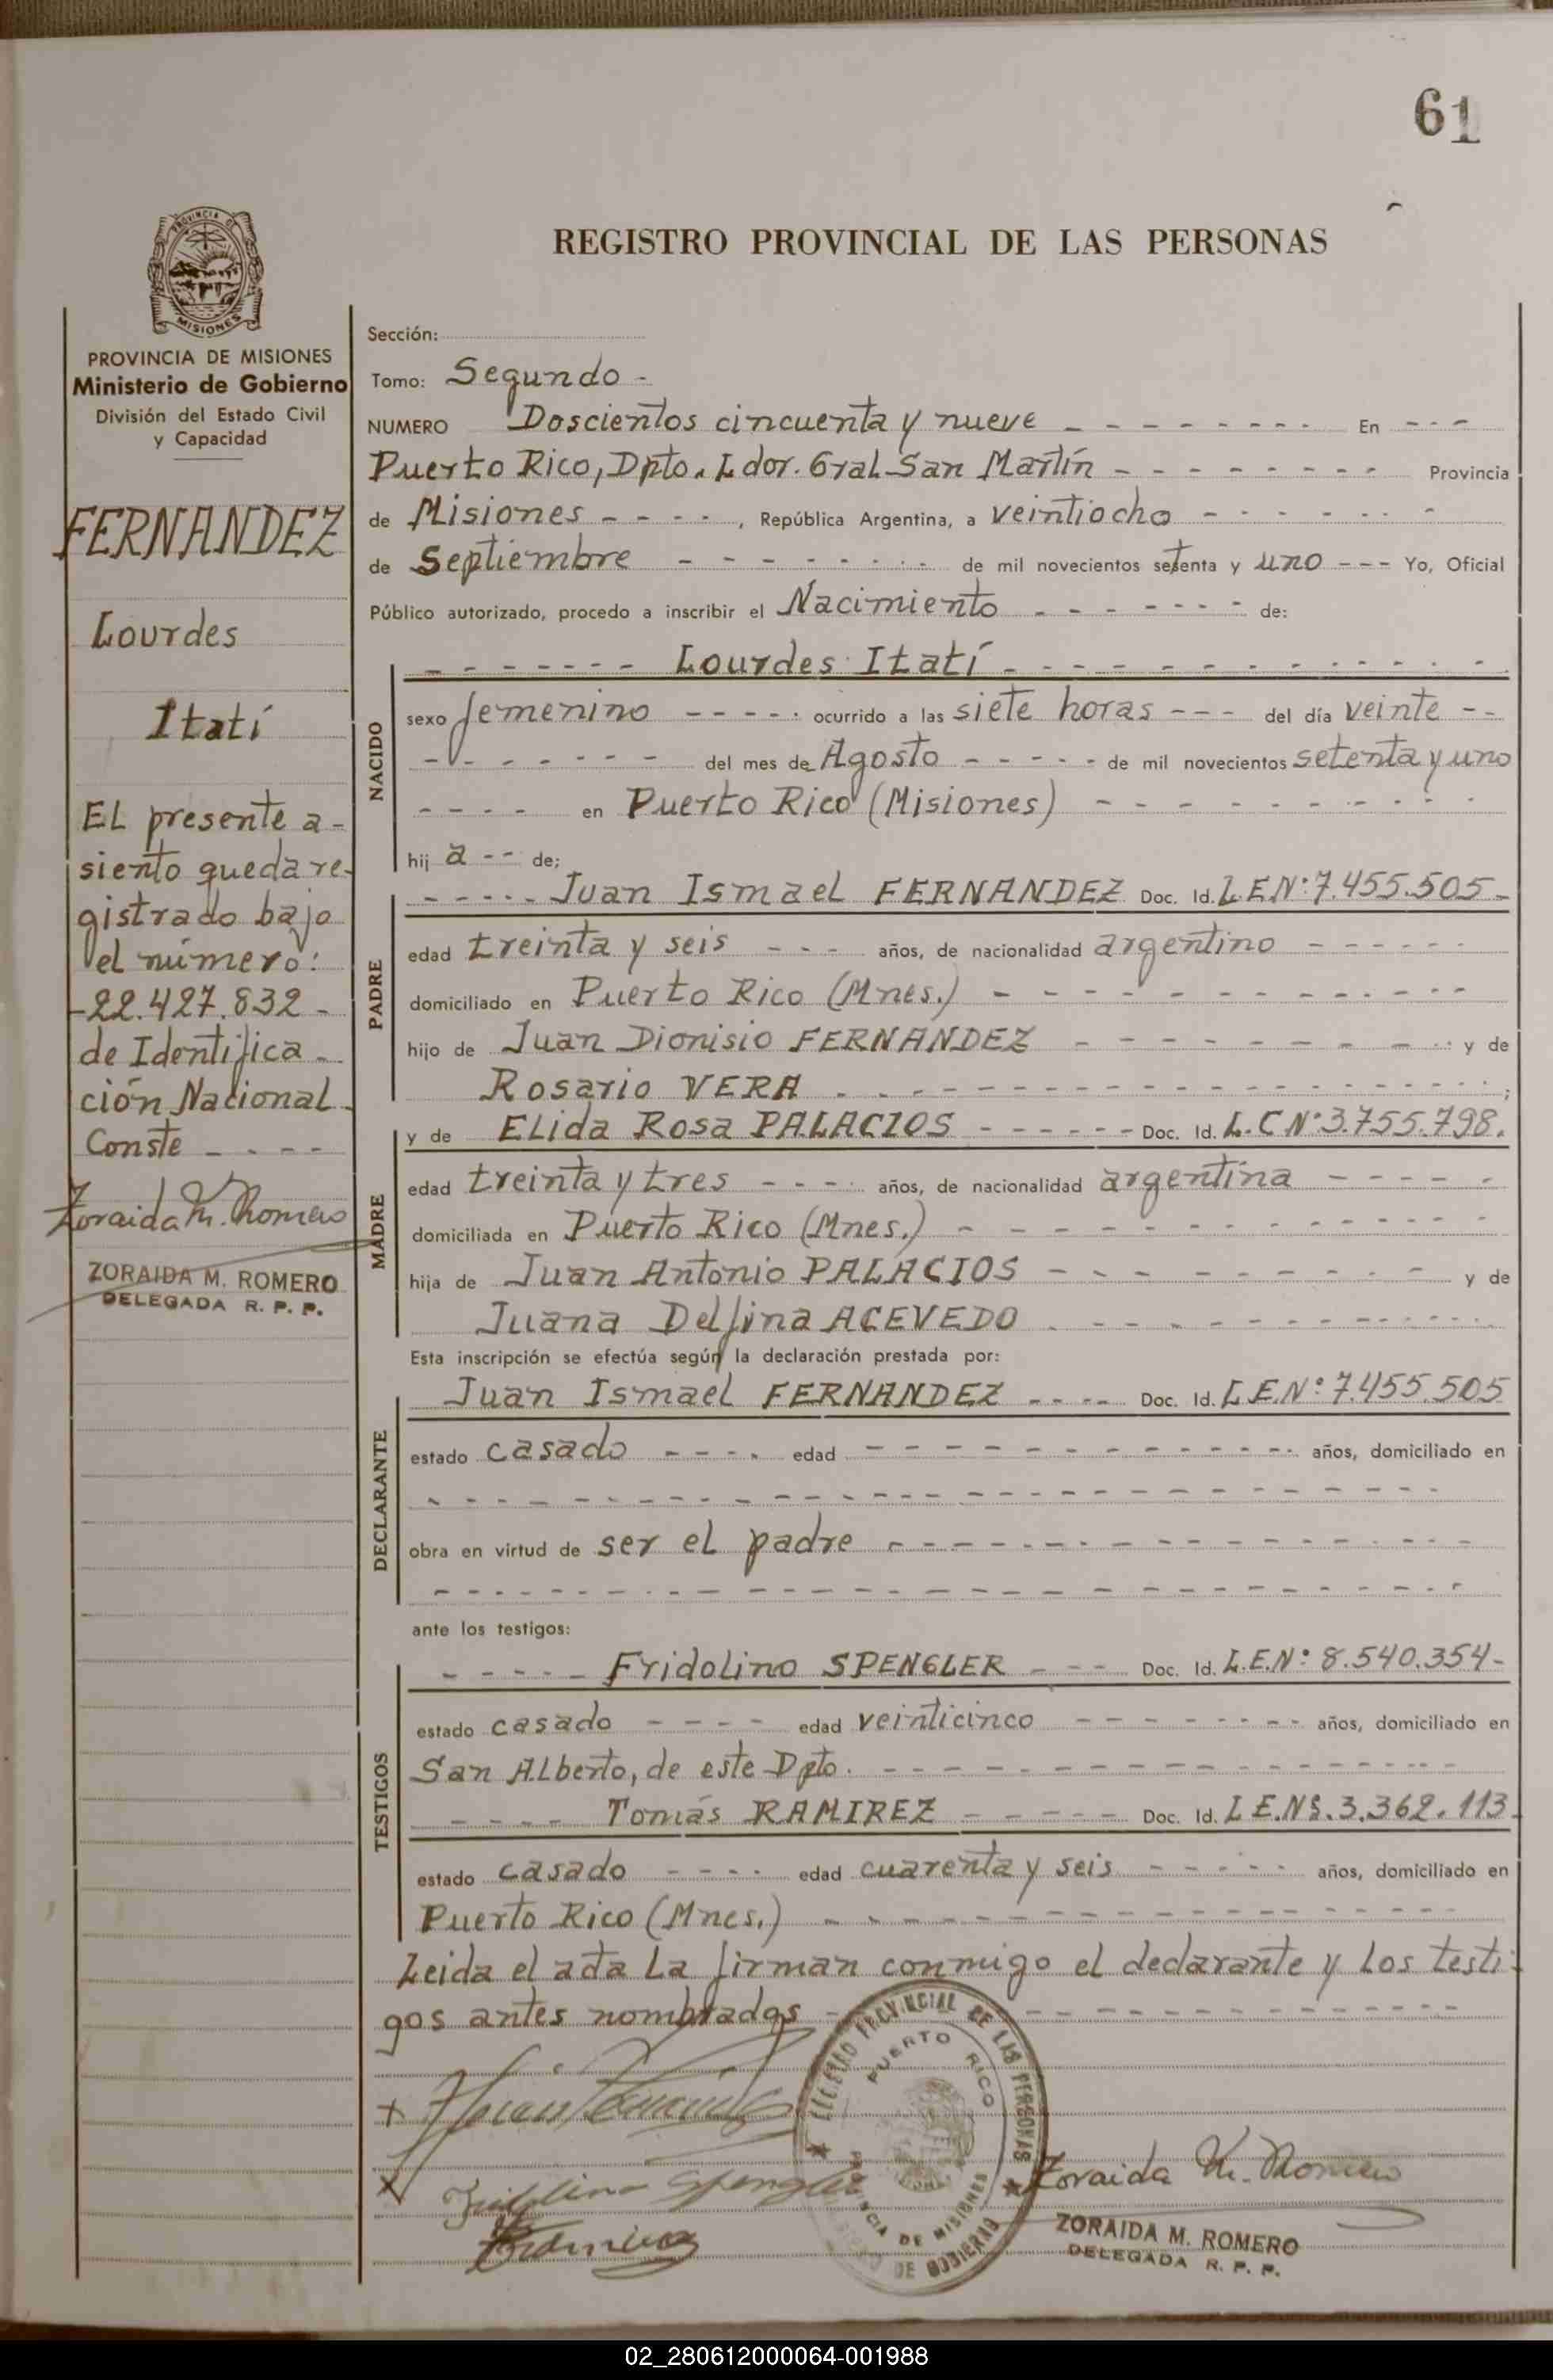 61
REGISTRO PROVINCIAL DE LAS PERSONAS
PROVINCIA DE
MISIONES
PROVINCIA DE MISIONES
Ministerio de Gobierno
División del Estado Civil
y Capacidad
FERNANDEZ
Lourdes
Itatí
EL presente a-
siento queda re-
gistrado bajo
el número:
-22.427.832-
de Identifica-
ción Nacional
Conste - - - -
Zoraida M. Romero
ZORAIDA M. ROMERO
DELEGADA R. P. P.
Sección:
Tomo: Segundo -
NUMERO Doscientos cincuenta y nueve - - - - - - - - En - - -
Puerto Rico, Dpto. Ldor. Gral San Martín - - - - - - - - Provincia
de Misiones - - - - , República Argentina, a veintiocho - - - - - - -
de Septiembre - - - - - - - - de mil novecientos setenta y uno - - - Yo, Oficial
Público autorizado, procedo a inscribir el Nacimiento - - - - - - - - de:
NACIDO
- - - - - - - Lourdes Itatí - - - - - - - - - - - - -
sexo femenino - - - - - ocurrido a las siete horas - - - del día veinte - -
- - - - - - - del mes de Agosto - - - - - de mil novecientos setenta y uno
- - - - en Puerto Rico (Misiones) - - - - - - - - - -
hij a - - de;
PADRE
- - - - - Juan Ismael FERNANDEZ Doc. Id. L.E.N: 7.455.505-
edad treinta y seis - - - años, de nacionalidad argentino - - - - - -
domiciliado en Puerto Rico (Mnes.) - - - - - - - - - - - -
hijo de Juan Dionisio FERNANDEZ - - - - - - - - - y de
Rosario VERA - - - - - - - - - - - - - - - - ;
MADRE
y de ELida Rosa PALACIOS - - - - - - Doc. Id. L.C.N: 3.755.798.
edad treinta y tres - - - - años, de nacionalidad argentina - - - - -
domiciliada en Puerto Rico (Mnes.) - - - - - - - - - - - - -
hija de Juan Antonio PALACIOS - - - - - - - - - y de
Juana Delfina ACEVEDO - - - - - - - - - - - - -
Esta inscripción se efectúa según la declaración prestada por:
DECLARANTE
Juan Ismael FERNANDEZ - - - - Doc. Id. L.E.N: 7.455.505
estado casado - - - - edad - - - - - - - - - - - - años, domiciliado en
- - - - - - - - - - - - - - - - - - - - - - - -
obra en virtud de ser el padre - - - - - - - - - - - - - - - -
- - - - - - - - - - - - - - - - - - - - - - - -
ante los testigos:
TESTIGOS
- - - - - Fridolino SPENGLER - - - Doc. Id. L.E.N: 8.540.354-
estado casado - - - - edad veinticinco - - - - - - - - años, domiciliado en
San ALberto, de este Dpto. - - - - - - - - - - - - - - - -
- - - - Tomás RAMIREZ - - - - - Doc. Id. L.E.Nº. 3.362.113.
estado casado - - - - edad cuarenta y seis - - - - - años, domiciliado en
Puerto Rico (Mnes.) - - - - - - - - - - - - - - - -
Leida el acta La firman conmigo el declarante y Los testi-
gos antes nombrados - - - - - - - - - - - - -
REGISTRO PROVINCIAL DE LAS PERSONAS
PUERTO RICO
PROVINCIA DE MISIONES
DE GOBIERNO
+
x Fridolino Spengler
Ramirez
Zoraida M. Romero
ZORAIDA M. ROMERO
DELEGADA R. P. P.
02_280612000064-001988